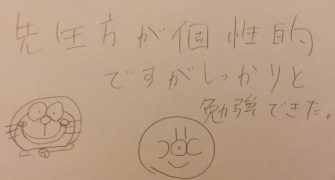 先生方が個性的
ですがしっかりと
勉強できた。